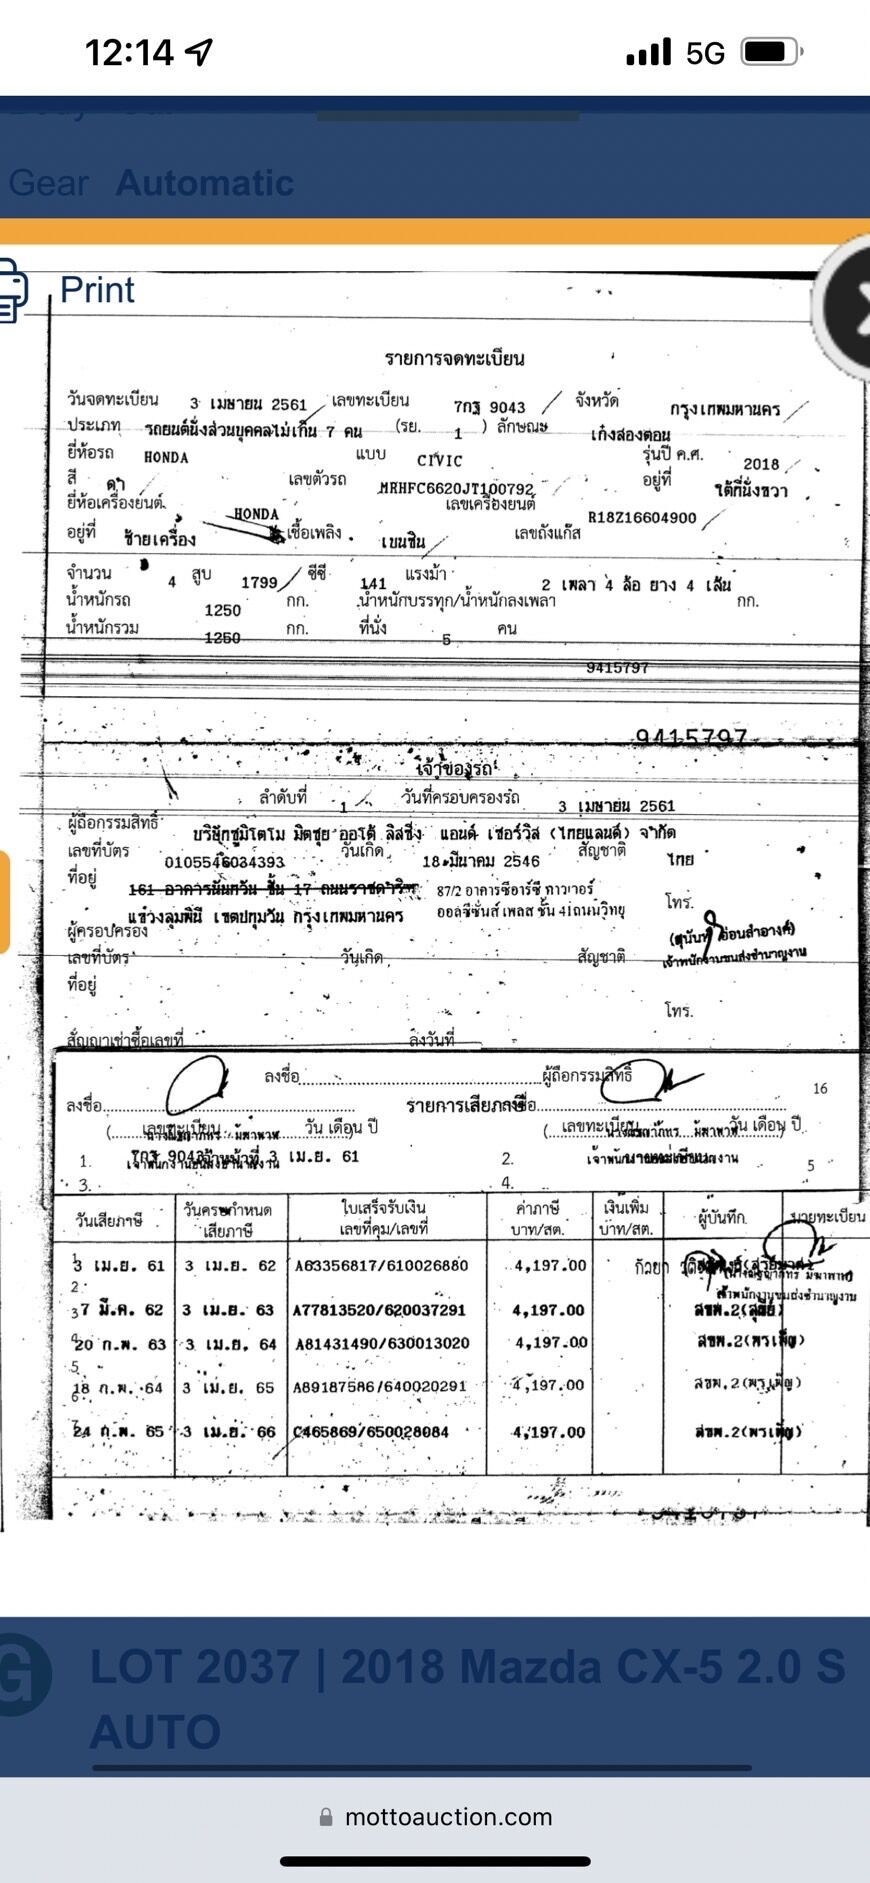 12:14
5G
Gear Automatic
Print
รายการจดทะเบียน
วันจดทะเบียน 3 เมษายน 2561 เลขทะเบียน 7กฐ 9043 จังหวัด กรุงเทพมหานคร
ประเภท รถยนต์นั่งส่วนบุคคลไม่เกิน 7 คน (รย. 1 ) ลักษณะ เก๋งสองตอน
ยี่ห้อรถ HONDA แบบ CIVIC รุ่นปี ค.ศ. 2018
สี ดำ เลขตัวรถ MRHFC6620JT100792 อยู่ที่ ใต้ที่นั่งขวา
ยี่ห้อเครื่องยนต์ HONDA เลขเครื่องยนต์ R18Z16604900
อยู่ที่ ซ้ายเครื่อง เชื้อเพลิง เบนซิน เลขถังแก๊ส
จำนวน 4 สูบ 1799 ซีซี 141 แรงม้า 2 เพลา 4 ล้อ ยาง 4 เส้น
น้ำหนักรถ 1250 กก. น้ำหนักบรรทุก/น้ำหนักลงเพลา กก.
น้ำหนักรวม 1250 กก. ที่นั่ง 5 คน
9415797
9415797
เจ้าของรถ
ลำดับที่ 1 วันที่ครอบครองรถ 3 เมษายน 2561
ผู้ถือกรรมสิทธิ์ บริษัทซูมิโตโม มิตซุย ออโต้ ลิสซิ่ง แอนด์ เซอร์วิส (ไทยแลนด์) จำกัด
เลขที่บัตร 0105546034393 วันเกิด 18 มีนาคม 2546 สัญชาติ ไทย
ที่อยู่ 161 อาคารนันทวัน ชั้น 17 ถนนราชดำริ 87/2 อาคารซีอาร์ซี ทาวเวอร์
แขวงลุมพินี เขตปทุมวัน กรุงเทพมหานคร ออลซีซั่นส์ เพลส ชั้น 41 ถนนวิทยุ โทร.
ผู้ครอบครอง
เลขที่บัตร วันเกิด สัญชาติ เจ้าพนักงานขนส่งชำนาญงาน
ที่อยู่
โทร.
สัญญาเช่าซื้อเลขที่ ลงวันที่
ลงชื่อ ผู้ถือกรรมสิทธิ์
16
ลงชื่อ รายการเสียภาษี ลงชื่อ
เลขทะเบียน วัน เดือน ปี เลขทะเบียน วัน เดือน ปี
1. 7กฐ 9043 3 เม.ย. 61 2. 5
3. 4.
วันเสียภาษี วันครบกำหนดเสียภาษี ใบเสร็จรับเงิน เลขที่คุม/เลขที่ ค่าภาษี บาท/สต. เงินเพิ่ม บาท/สต. ผู้บันทึก นายทะเบียน
3 เม.ย. 61 3 เม.ย. 62 A63356817/610026880 4,197.00
7 มี.ค. 62 3 เม.ย. 63 A77813520/620037291 4,197.00 สขพ.2
20 ก.พ. 63 3 เม.ย. 64 A81431490/630013020 4,197.00 สขพ.2(พรเพ็ญ)
18 ก.พ. 64 3 เม.ย. 65 A89187586/640020291 4,197.00 สขพ.2(พรเพ็ญ)
24 ก.พ. 65 3 เม.ย. 66 C465869/650028084 4,197.00 สขพ.2(พรเพ็ญ)
LOT 2037 | 2018 Mazda CX-5 2.0 S
AUTO
mottoauction.com